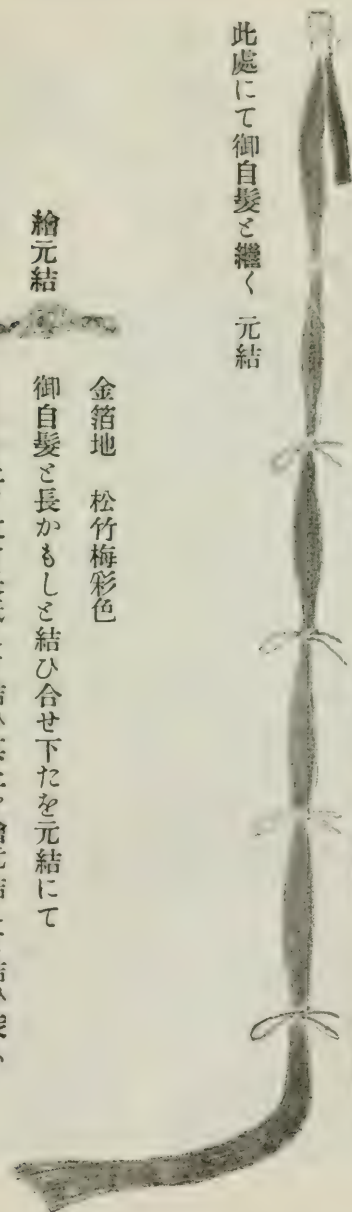 此處にて御自髮と繼く 元結
繪元結
金箔地 松竹梅彩色
御自髮と長かもしと結ひ合せ下たを元結にて